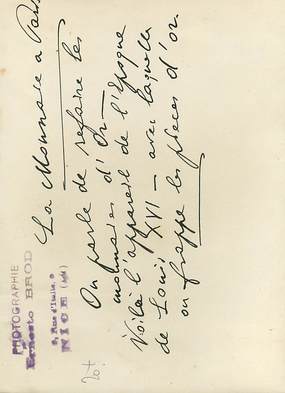 La Monnaie a Paris
On parle de refaire les
monnaies d'Or —
Voilà l'appareil de l'Epoque
de Louis XVI — avec laquelle
on frappe les pieces d'or.
PHOTOGRAPHIE
Ernesto BROD
8, Rue d'Italie, 8
NICE (AM)